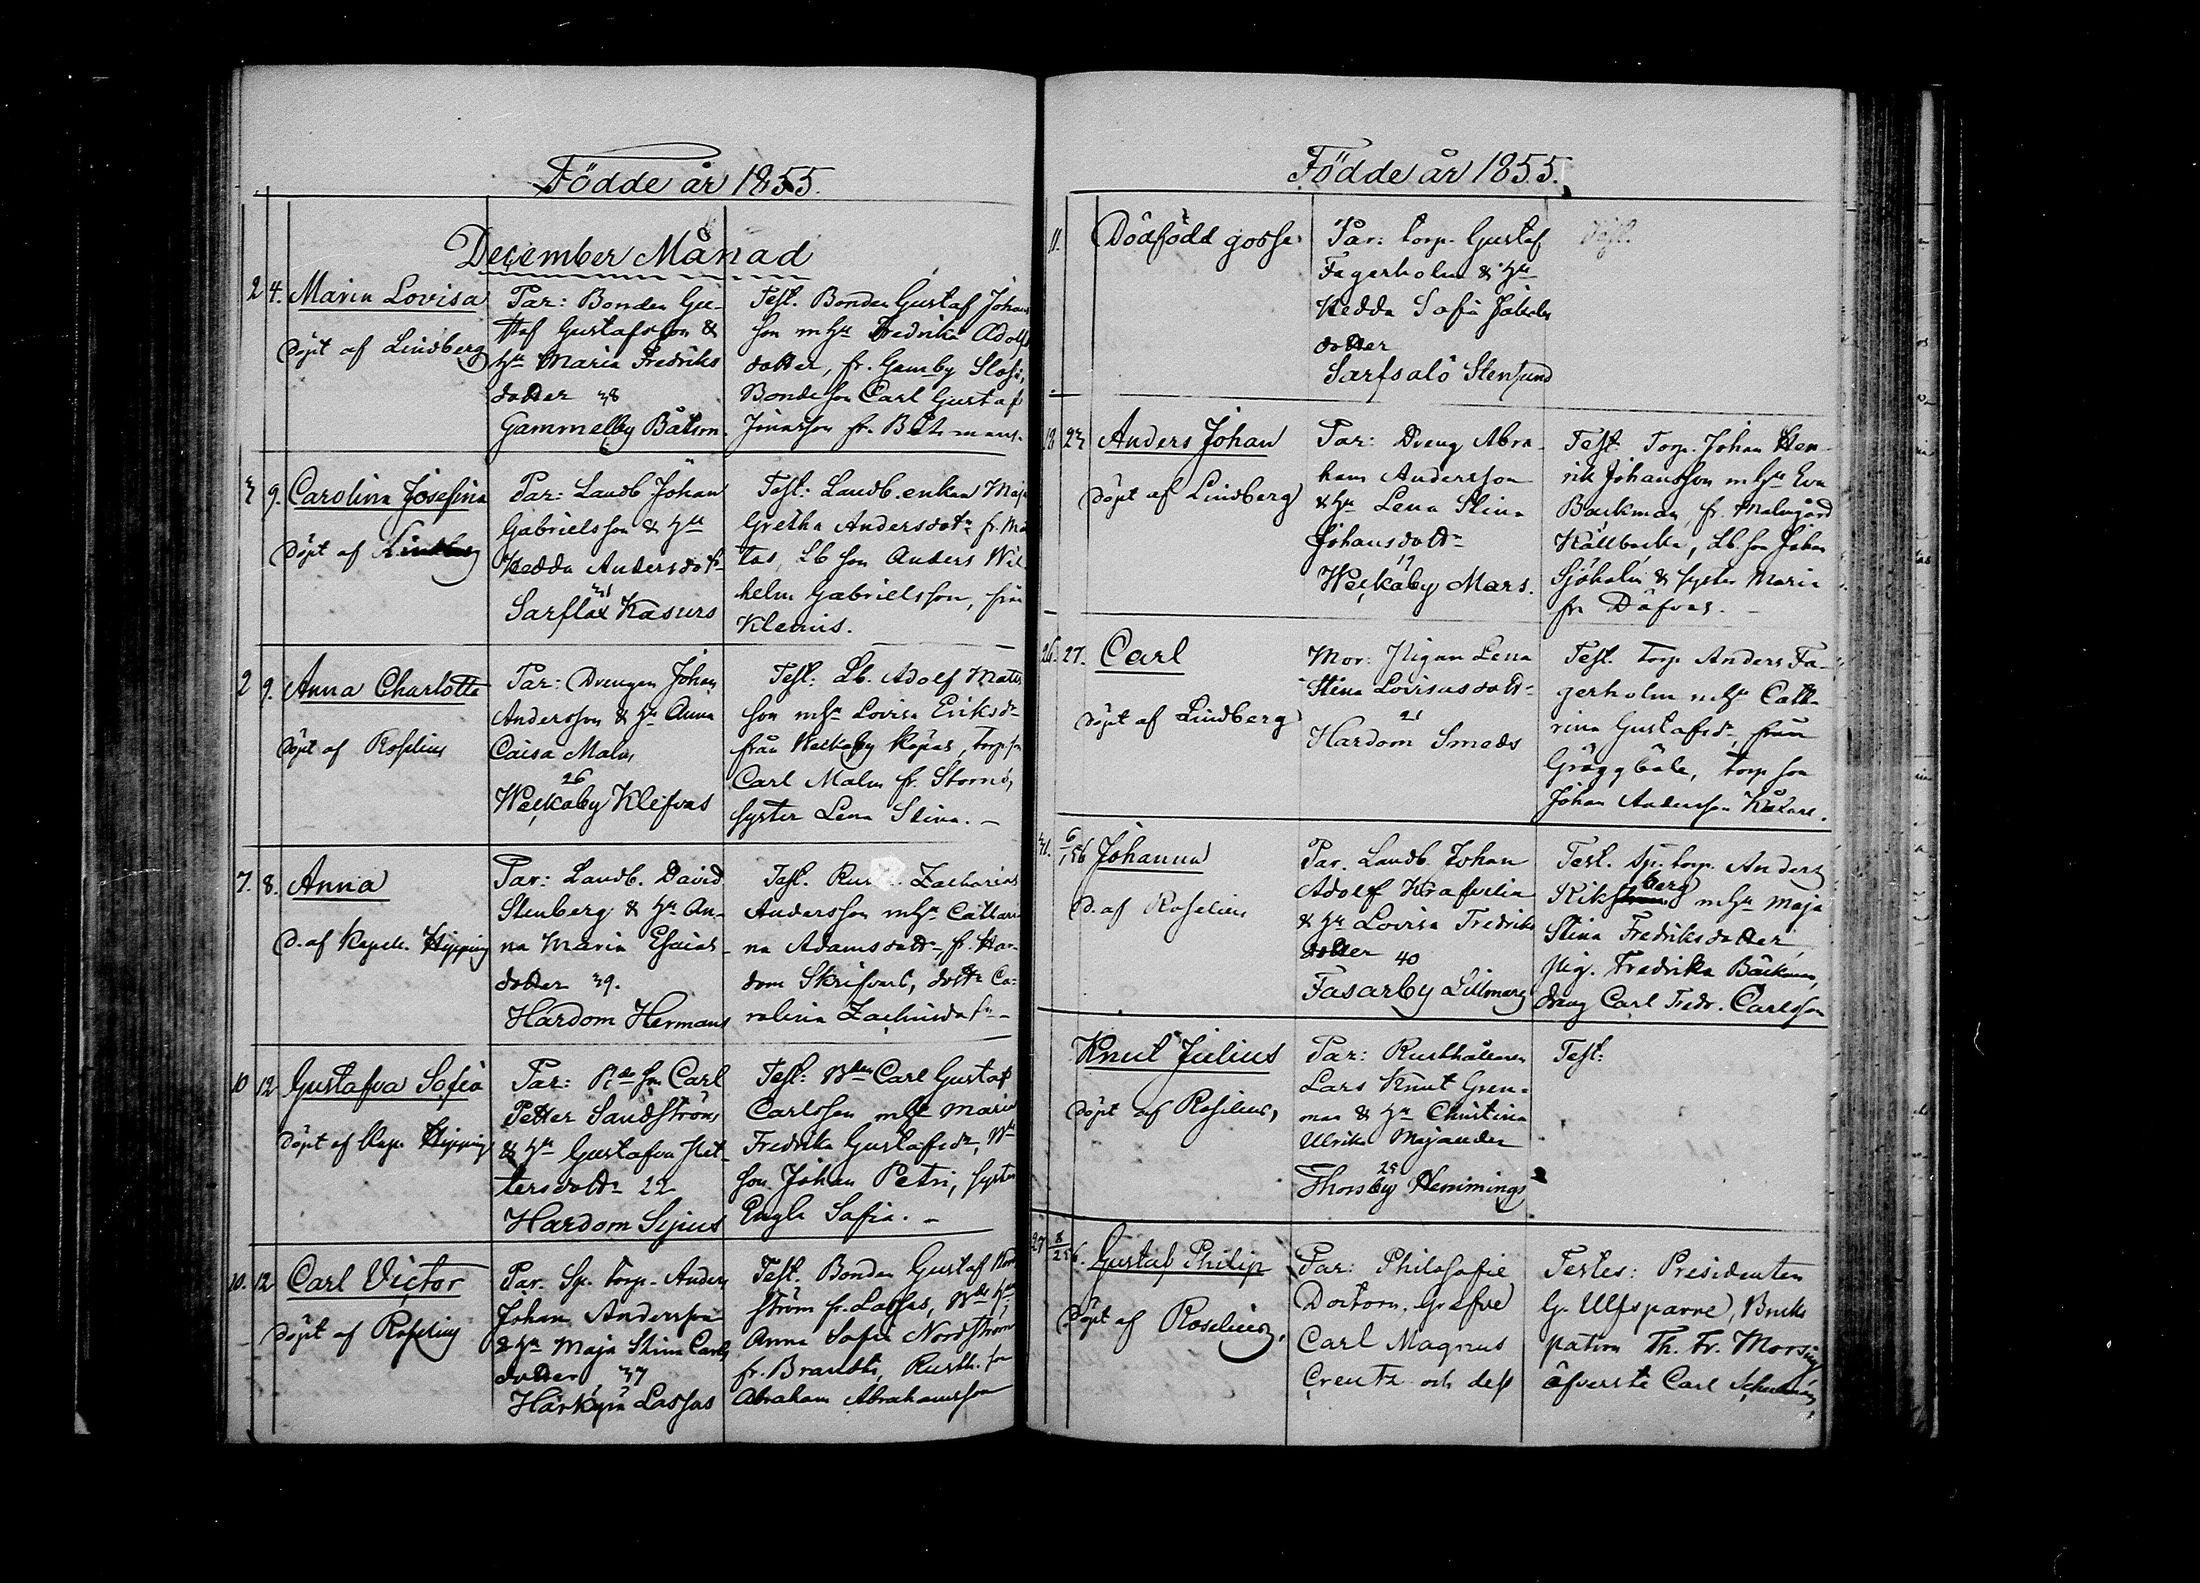 Födde år 1855.
December Månad
2 4. Maria Lovisa
döpt af Lindberg
Par: Bonden Gu-
staf Gustafsson &
hu Maria Fredriks
dotter 38
Gammelby Båtsm.
Test. Bonden Gustaf Johans
son m hu Fredrika Adolfs
dotter, fr.
Bondeson Carl Gustaf
fr. Båtsmans.
3 9. Carolina Josefina
döpt af Lindberg
Par: Landb Johan
Gabrielsson & hu
Hedda Andersdotr
31
Sarflax Kasurs
Test: Landb. enkan Maja
Gretha Andersdotr fr. Mat
tas, Lb son Anders Wil
helm Gabrielsson, från
Klemis.
2 9. Anna Charlotta
döpt af Roselius
Par: Drengen Johan
Andersson & hu Anna
Caisa Malm
26
Weckaby Klifvas
Test: Lb. Adolf Mats
son m hu Lovisa Eriksdr
från Weckaby torp son
Carl Malm fr. Stornäs,
syster Lena Stina. -
7. 8. Anna
d. af Kapell. Hipping
Par: Landb. David
Stenberg & hu An-
na Maria Esaias
dotter 39.
Hardom Hermans
Test. Zacharias
Andersson m hu Cathari
na Adamsdotr, fr. Har-
dom Skrifvars, dottr Ca-
rolina
10 12 Gustafva Sofia
döpt af Kap. Hipping
Par: son Carl
Petter Sandström
& hu Gustafva Pet-
tersdottr 22
Hardom Sejus
Test: Bden Carl Gustaf
Carlsson m hu Maria
Fredrika Gustafsdr,
son Johan Petri, syster
Engla Sofia. -
10. 12 Carl Victor
döpt af Roselius
Par. Sp. torp. Anders
Johan Andersson
& hu Maja Stina Carls
dotter, 37
Härkäpä Lassas
Test. Bonden Gustaf Nord
ström fr. Lassas,
Anna Sofia Nordström
fr. Brandts, Rusth. son
Abraham Abrahamsson
Födde år 1855.
11. Dödfödd gosse
Par: torp. Gustaf
Fagerholm & hu
Hedda Sofia Jakobs
dotter
Sarfsalö Stensund
18 23 Anders Johan
döpt af Lindberg
Par: Dreng Abra-
ham Andersson
& hu Lena Stina
Johansdottr
Weckaby Mars.
Test. Torp. Johan Hen-
rik Johansson m hu Eva
Backman, fr. Malmgård
Källbacka, Lb. son Johan
Sjöholm & syster Maria
fr Döfvas. -
26. 27. Carl
döpt af Lindberg
Mor: Pigan Lena
Stina Lovisasdottr
21
Hardom Smeds
Test. torp Anders Fa-
gerholm m hu Catha
rina Gustafsdr, från
Gräggböle, torp son
Johan Andersson
31. 6/1 56 Johanna
d. af Roselius
Par. Landb. Johan
Adolf
& hu Lovisa Fredriks
dotter 40
Fasarby Lillmars
Test. Sp. torp. Anders
Rikberg m hu Maja
Stina Fredriksdotter
Pig. Fredrika Bäckman,
dreng Carl Fredr. Carlsson
Knut Julius
döpt af Roselius,
Par: Rusthållaren
Lars Knut Gren-
man & hu Christina
Ulrika Majander
25
Thorsby Hemmings
Test:
27 8/2 56. Gustaf Philip
döpt af Roselius,
Par: Philosofie
Doctorn, Grefve
Carl Magnus
Creutz och dess
Testes: Presidenten
Gr. Ulfsparre, Bruks
patron Th. Fr. Morsing
öfverste Carl